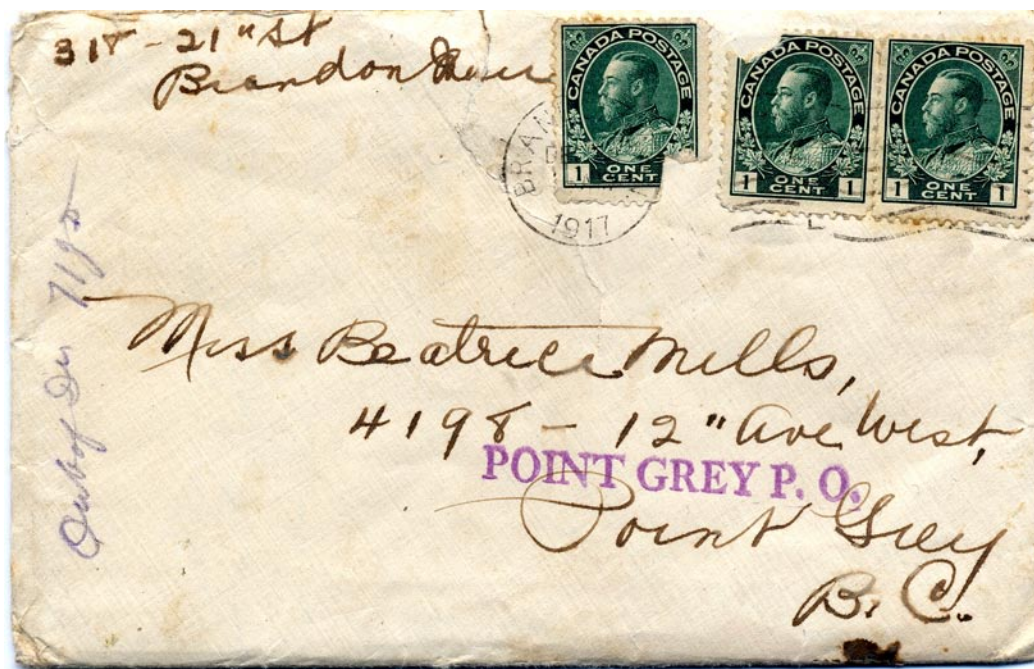 318 - 21" St
Brandon
CANADA POSTAGE
1 ONE CENT
CANADA POSTAGE
1 ONE CENT 1
CANADA POSTAGE
1 ONE CENT 1
BRAN
DE
1917
Miss Beatrice Mills,
4198 - 12" Ave West,
POINT GREY P. O.
Point Grey
B. C.